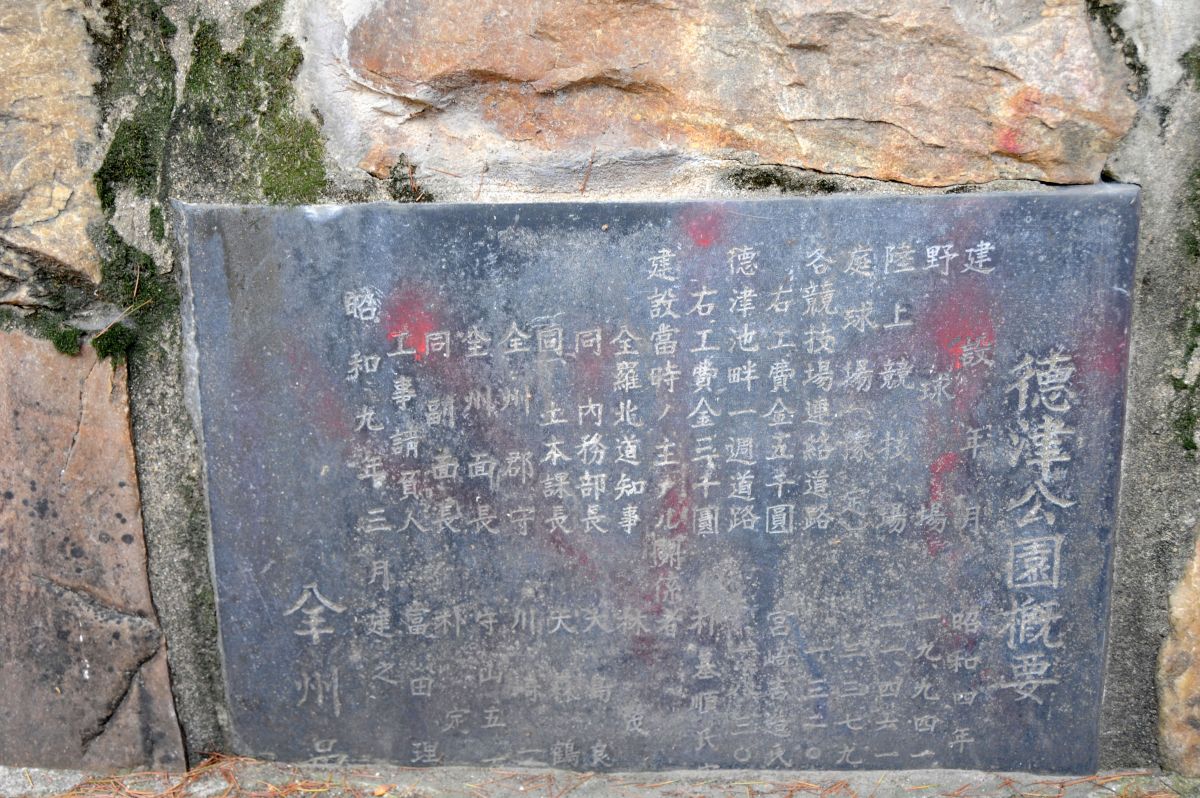 德津公園概要
建設年月 昭和四年
野球場 一九九四一
陸上競技場 二一四六一
庭球場(豫定) 三三七九
各競技場連絡道路 一三二〇
右工費金五千圓 宮崎吉造氏
德津池畔一週道路 二〇
右工費金三千圓 朴基順氏
建設當時ノ主ナル關係者
全羅北道知事 林 茂
同 内務部長 大島良
同 土木課長 天 鶴
全州郡守 川崎
全州面長 守山五
同副面長 朴 定
工事請負人 富田 理
昭和九年三月建之
全州